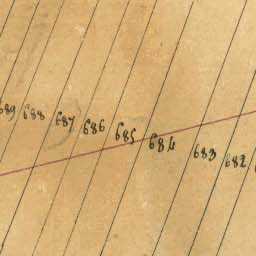 689 688 687 686 685 684 683 682